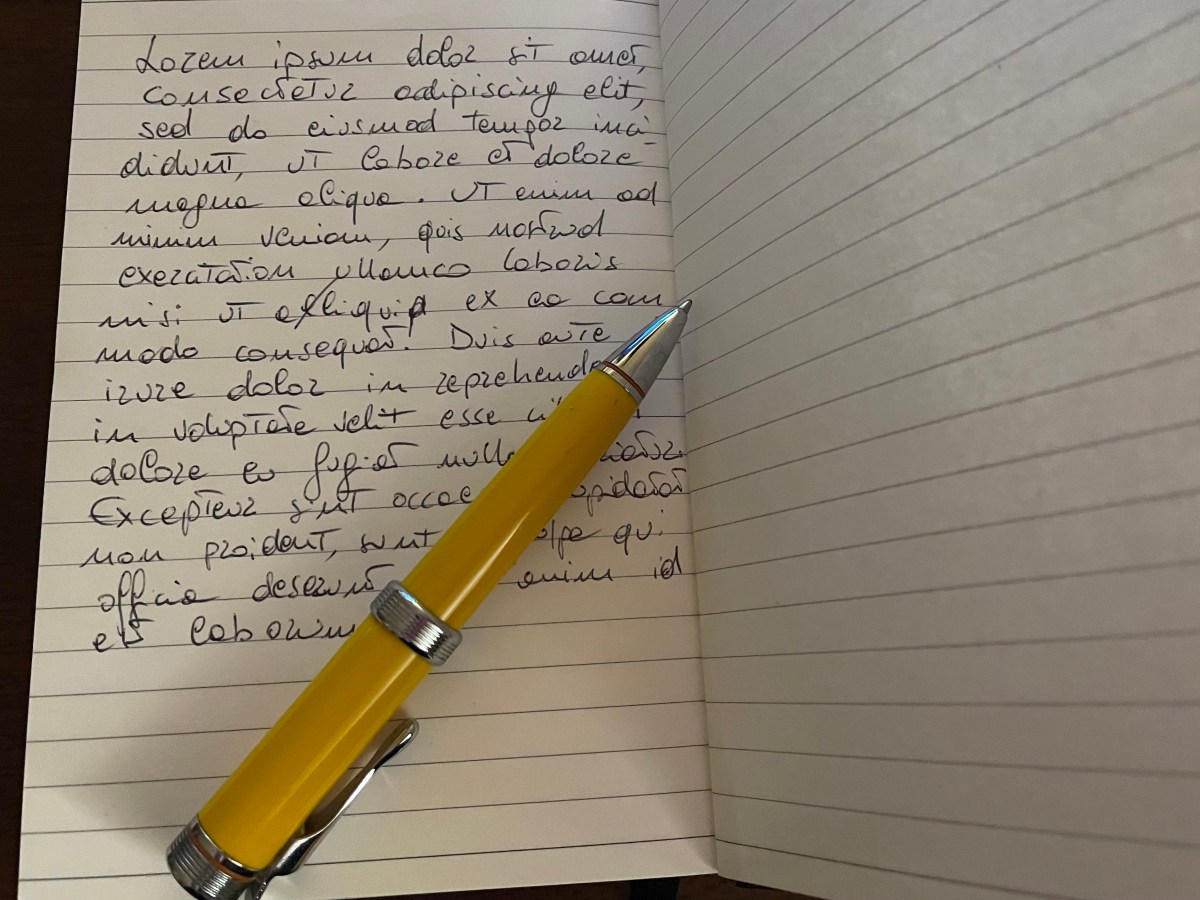 Lorem ipsum dolor sit amet,
consectetur adipiscing elit,
sed do eiusmod tempor inci-
didunt, ut labore et dolore
magna aliqua. Ut enim ad
minim veniam, quis nostrud
exercitation ullamco laboris
nisi ut aliquip ex ea com
modo consequat. Duis aute
irure dolor in reprehende
in voluptate velit esse
dolore eu fugiat
Excepteur sint
non proident, sunt qui
officia deserunt enim id
est laborum